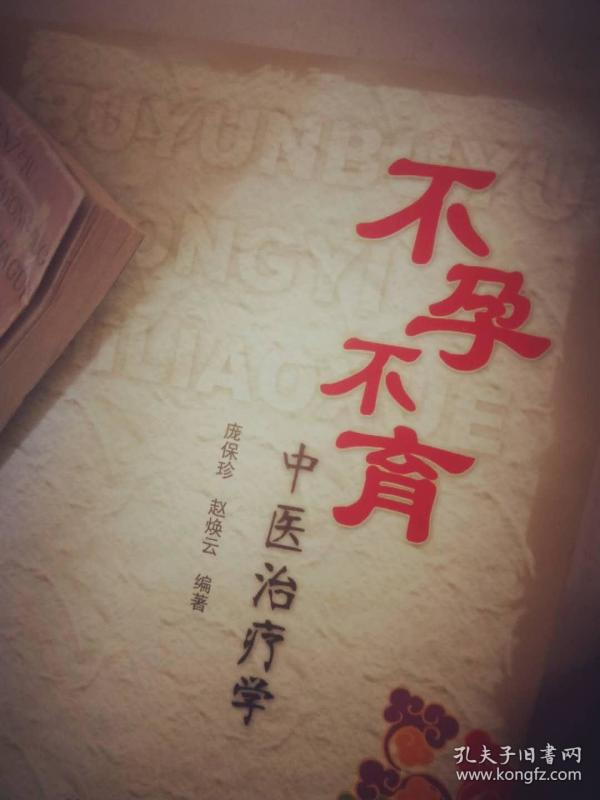 BUYUNBUYU
ZHONGYI
ZHILIAOXUE
不孕
不育
中医治疗学
庞保珍 赵焕云 编著
孔夫子旧书网
www.kongfz.com